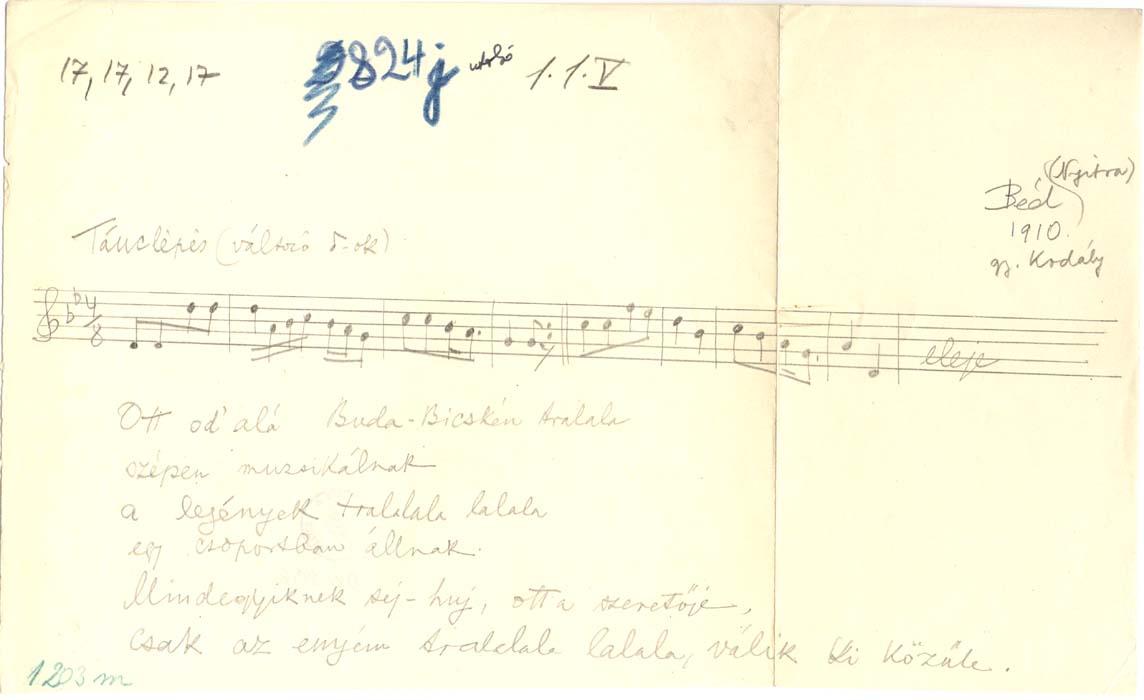 17, 17, 12, 17
824j utolsó 1. 1. V
(Nyitra)
Béd
1910.
gy. Kodály
Tánclépés (változó 5-ok)
4/8
eleje
Ott od'alá Buda-Bicskén tralala
szépen muzsikálnak
a legények tralalala lalala
egy csoportban állnak.
Mindegyiknek sej-huj, ott a szeretője,
csak az enyém tralalala lalala, válik ki közüle.
1203 m